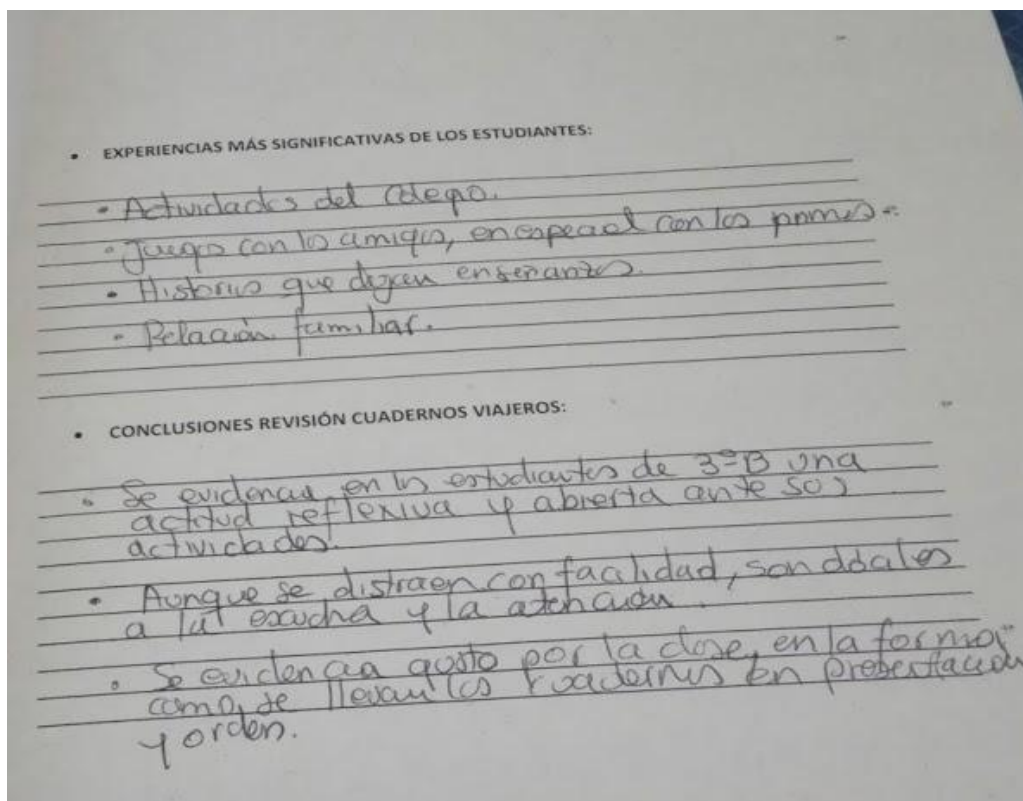 • EXPERIENCIAS MÁS SIGNIFICATIVAS DE LOS ESTUDIANTES:
- Actividades del Colegio.
- Juegos con los amigos, en especial con los primos.
- Historias que dejan enseñanzas.
- Relación familiar.
• CONCLUSIONES REVISIÓN CUADERNOS VIAJEROS:
• Se evidencia en los estudiantes de 3ºB una
actitud reflexiva y abierta ante sus
actividades.
• Aunque se distraen con facilidad, son dóciles
a la escucha y la atención.
• Se evidencia gusto por la clase, en la forma
como se llevan los cuadernos en presentación
y orden.